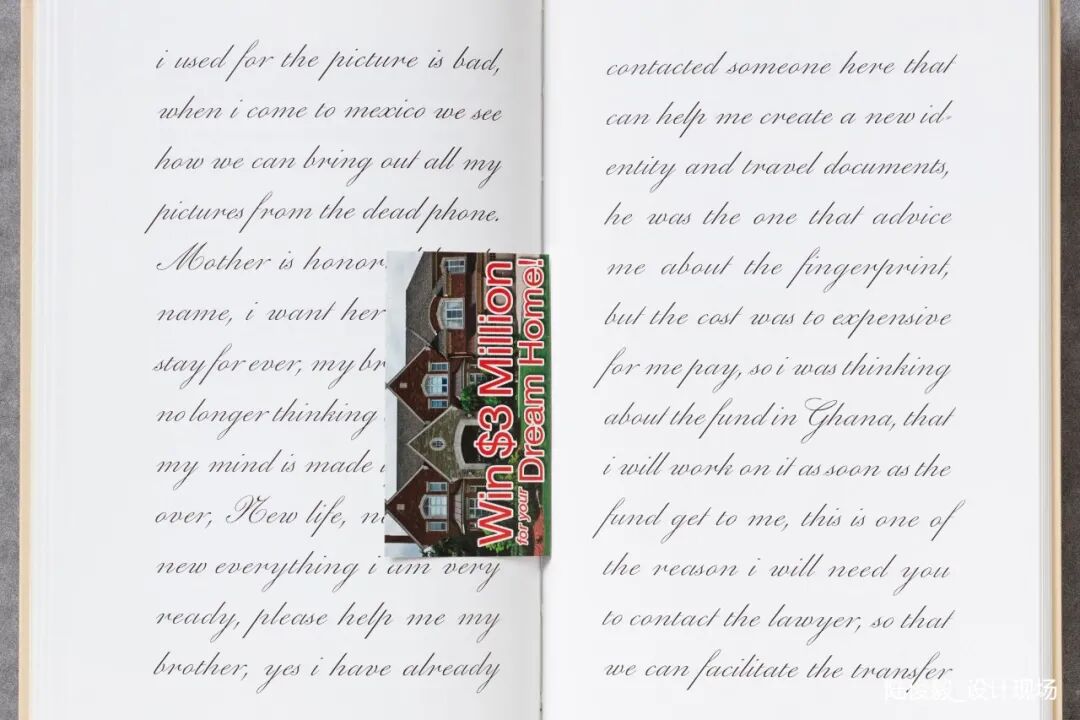 i used for the picture is bad,
when i come to mexico we see
how we can bring out all my
pictures from the dead phone.
Mother is honor
name, i want her
stay for ever, my br
no longer thinking
my mind is made
over, New life,
new everything i am very
ready, please help me my
brother, yes i have already
Win $3 Million
for your Dream Home!
contacted someone here that
can help me create a new id-
entity and travel documents,
he was the one that advice
me about the fingerprint,
but the cost was to expensive
for me pay, so i was thinking
about the fund in Ghana, that
i will work on it as soon as the
fund get to me, this is one of
the reason i will need you
to contact the lawyer, so that
we can facilitate the transfer
陆俊毅_设计现场